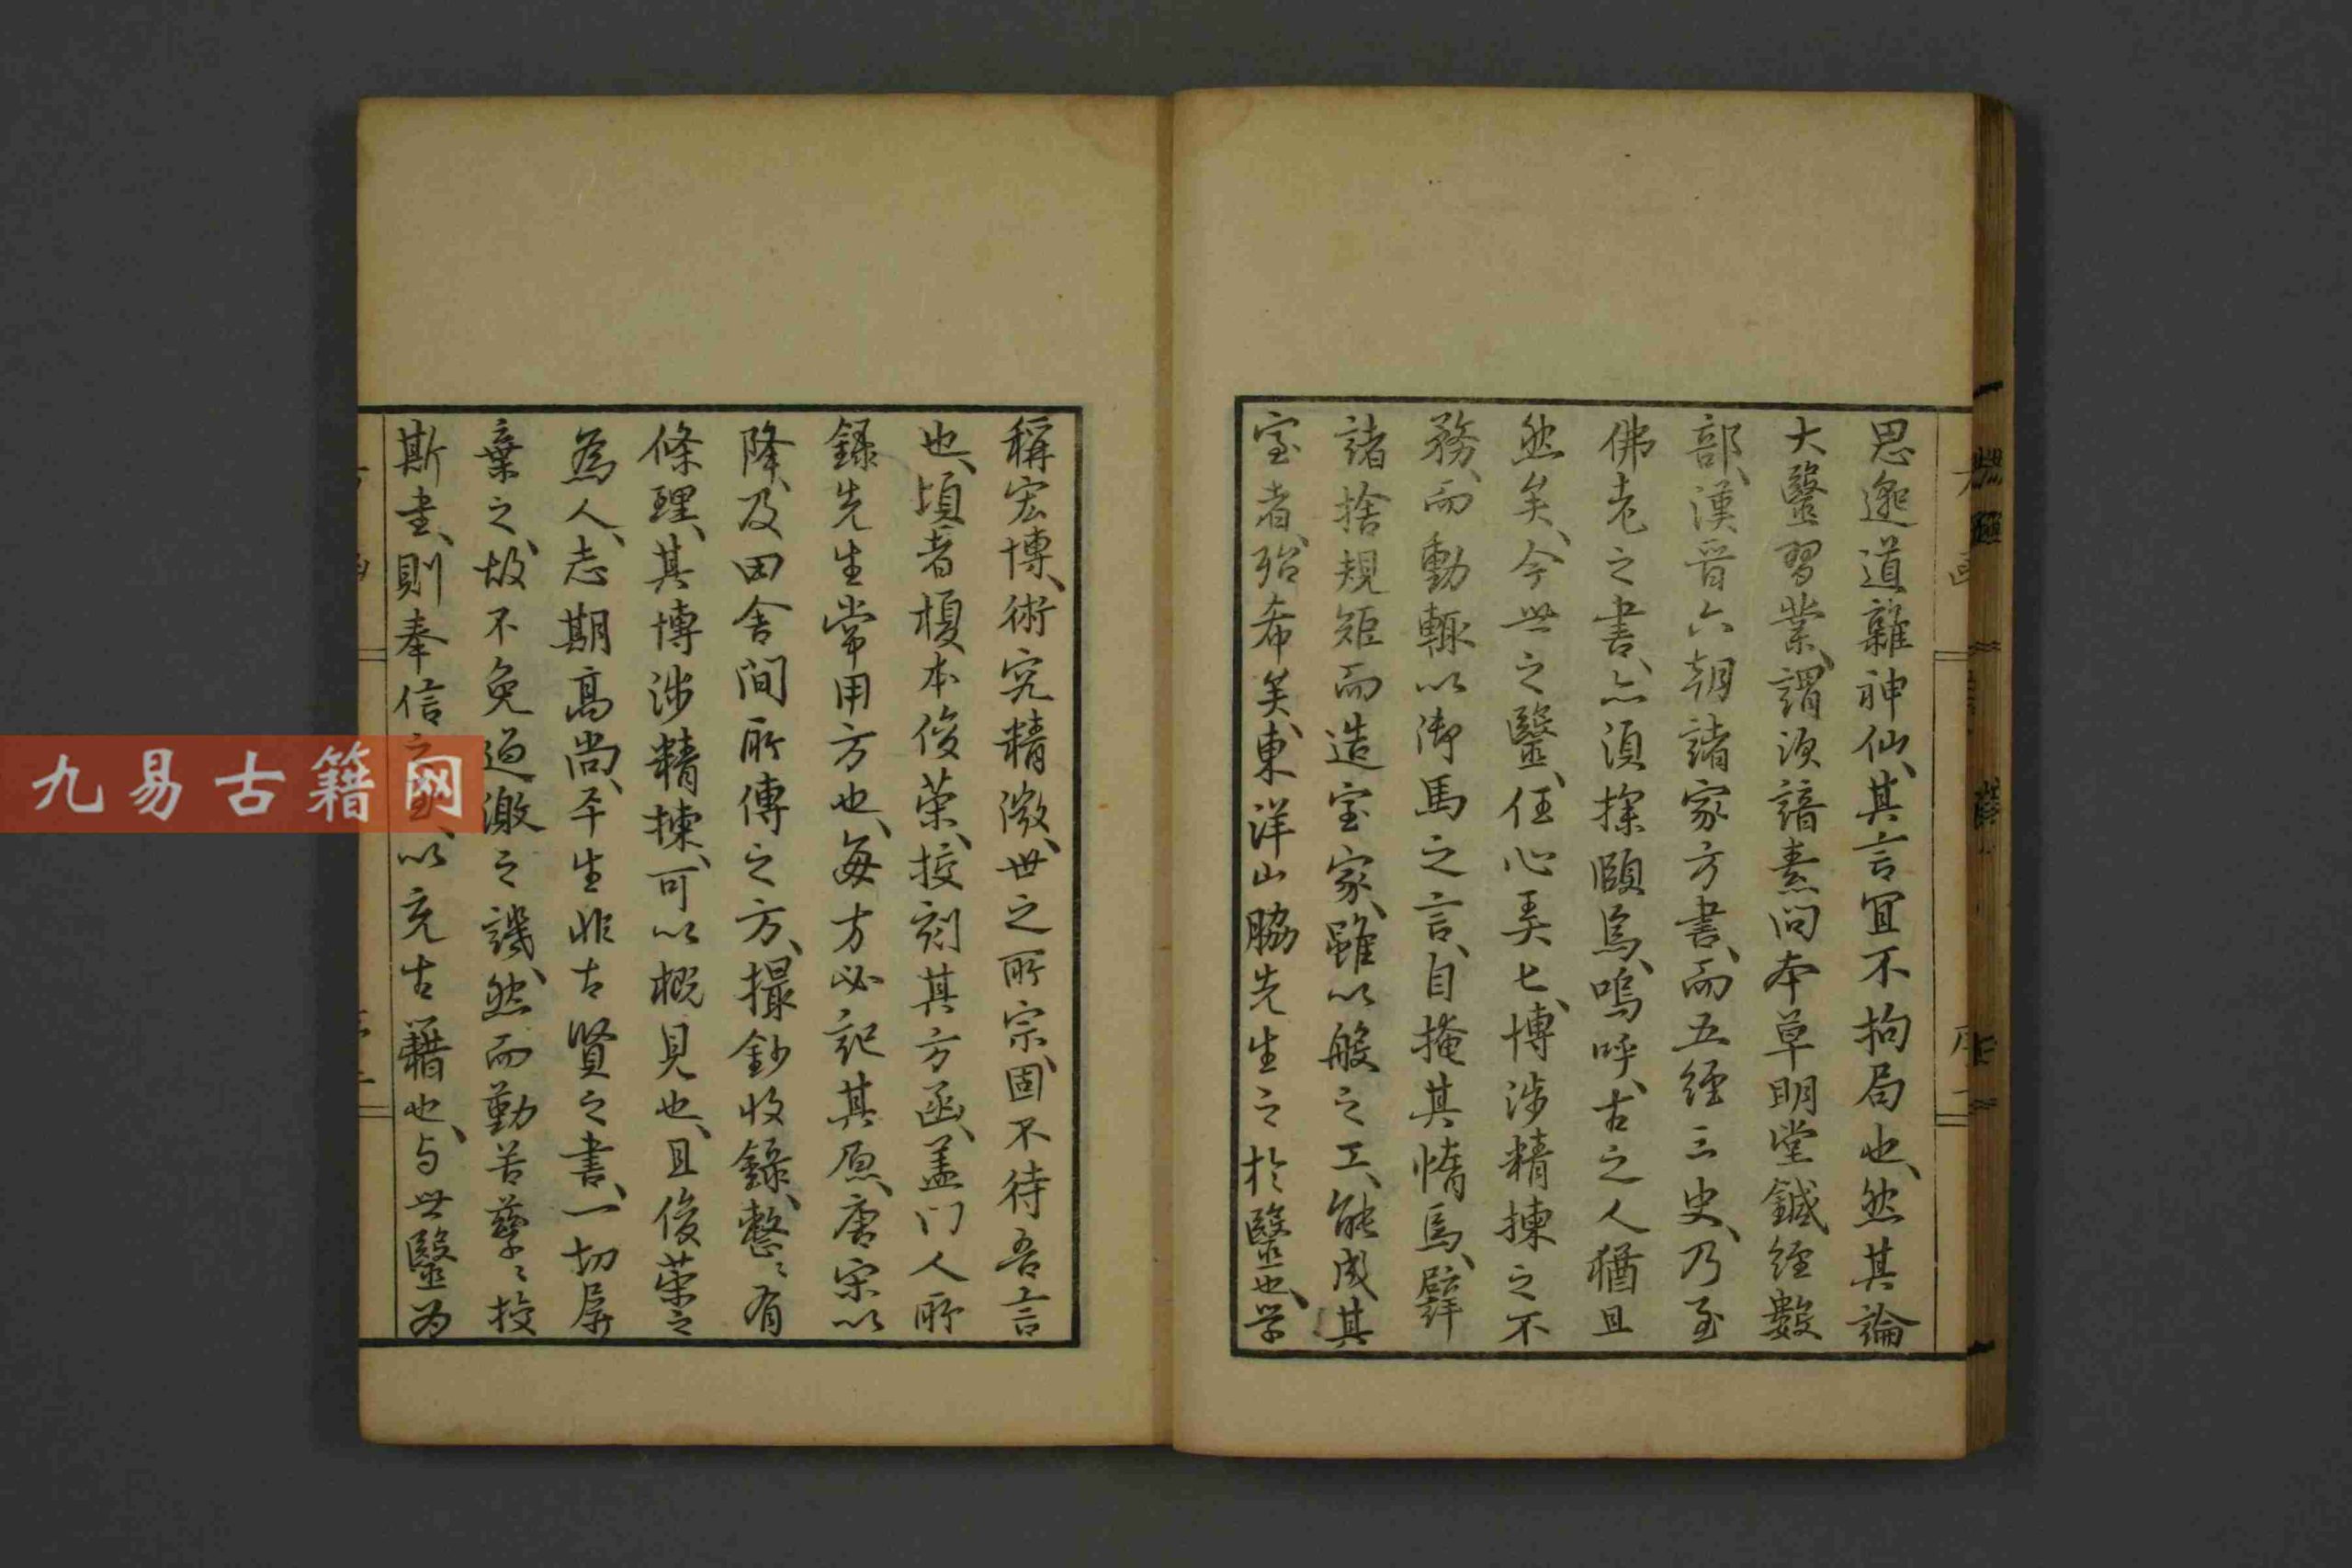 思邈道雜神仙、其言宜不拘局也、然其論
大醫習業、謂須諳素問本草明堂鍼經數
部、漢晉六朝諸家方書、而五經三史、乃至
佛老之書、亦須探頤焉、嗚呼、古之人猶且
然矣、今世之醫、任心弄七、博涉精揀之不
務、而動輒以御馬之言、自掩其惰焉、辟
諸捨規矩而造室家、雖以般之工、能成其
室者、殆希矣、東洋山脇先生之於醫也、学
稱宏博、術究精微、世之所宗、固不待吾言
也、頃者榎本俊榮、挍刻其方函、盖门人所
録先生常用方也、每方必記其原、唐宋以
降、及田舍間所傳之方、撮鈔收録、整〻有
條理、其博涉精揀、可以概見也、且俊榮之
為人、志期高尚、平生非古賢之書、一切屏
棄之、故不免過激之譏、然而勤苦孳〻挍
斯書、則奉信之、以充古籍也、与世醫为
九易古籍网